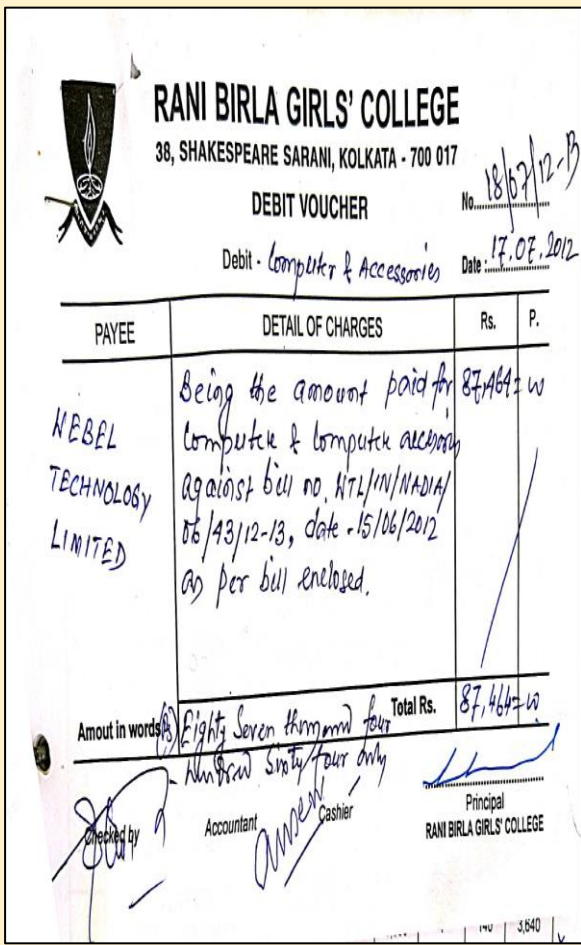 RANI BIRLA GIRLS' COLLEGE
38, SHAKESPEARE SARANI, KOLKATA - 700 017
DEBIT VOUCHER
No. 18/07/12-B
Debit - Computer & Accessories
Date : 17.07.2012
PAYEE DETAIL OF CHARGES Rs. P.
WEBEL
TECHNOLOGY
LIMITED
Being the amount paid for 87,464=00
Computer & Computer accessory
against bill no. WTL/IN/NADIA/
06/43/12-13, date - 15/06/2012
as per bill enclosed.
Total Rs. 87,464=00
Amout in words (Rs) Eighty Seven thousand four
hundred Sixty four only
Checked by Accountant Cashier
Principal
RANI BIRLA GIRLS' COLLEGE
140 3,640